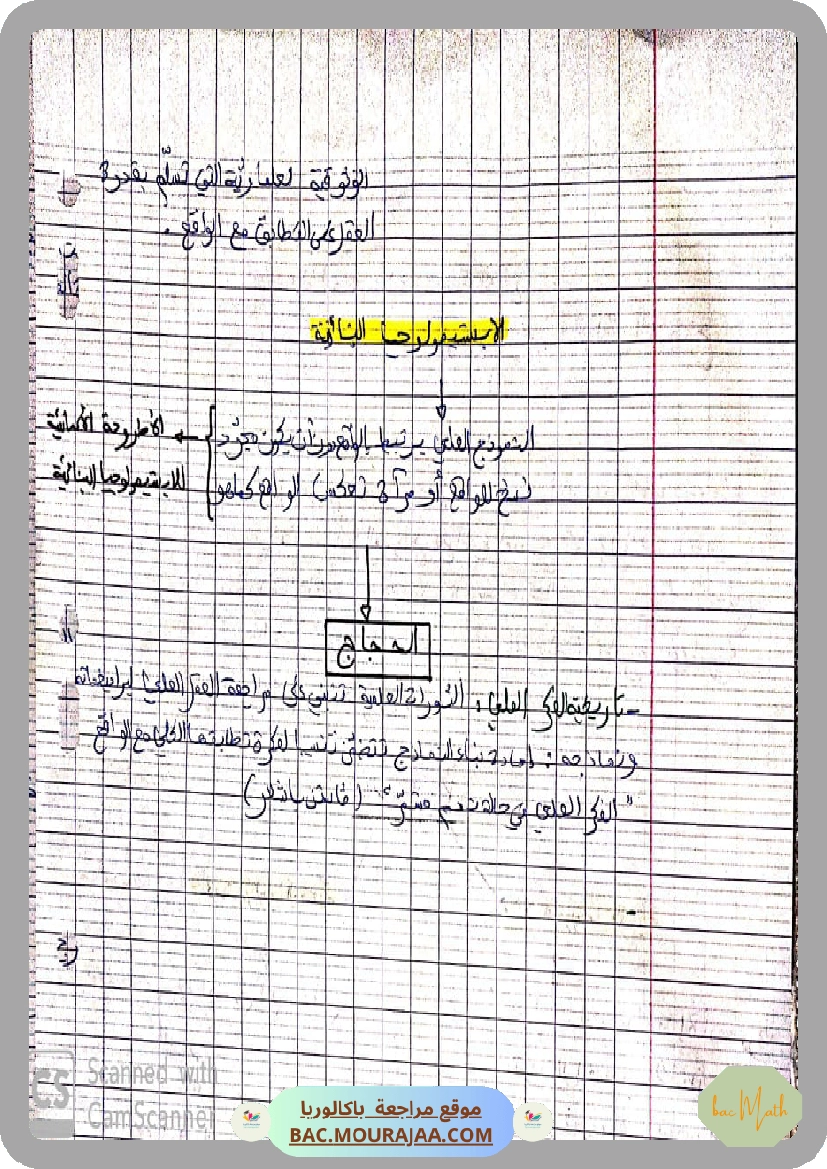 الوثوقية المعيارية التي تسلّم بقدرة
العقل على التطابق مع الواقع.
الابستيمولوجيا البنائية
النموذج العلمي يرتبط بالواقع دون أن يكون مجرّد
نسخ للواقع أو مرآة تعكس الواقع كما هو
الأطروحة الأساسية
للابستيمولوجيا البنائية
الحجاج
- تاريخية الفكر العلمي: الثورات العلمية تنبني على مراجعة العقل العلمي
ونماذجه: إعادة بناء النماذج تقتضي تنسيبا لفكرة تطابقها الكلي مع الواقع
"الفكر العلمي في حالة ندم مستمرّ" (غاستون باشلار)
Scanned with
CS CamScanner
موقع مراجعة باكالوريا
BAC.MOURAJAA.COM
bac Math